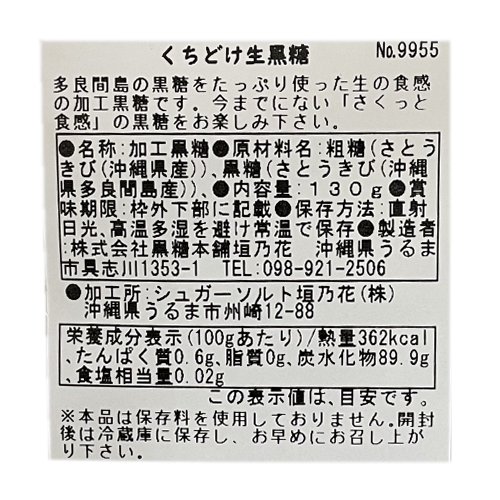 くちどけ生黒糖 No.9955
多良間島の黒糖をたっぷり使った生の食感
の加工黒糖です。今までにない「さくっと
食感」の黒糖をお楽しみ下さい。
●名称:加工黒糖●原材料名:粗糖(さとう
きび(沖縄県産))、黒糖(さとうきび(沖縄
県多良間島産))、●内容量:130g●賞
味期限:枠外下部に記載●保存方法:直射
日光、高温多湿を避け常温で保存●製造者
:株式会社黒糖本舗垣乃花 沖縄県うるま
市具志川1353-1 TEL:098-921-2506
●加工所:シュガーソルト垣乃花(株)
沖縄県うるま市州崎12-88
栄養成分表示(100gあたり)/熱量362kcal
、たんぱく質0.6g、脂質0g、炭水化物89.9g
、食塩相当量0.02g
この表示値は、目安です。
※本品は保存料を使用しておりません。開封
後は冷蔵庫に保存し、お早めにお召し上が
り下さい。